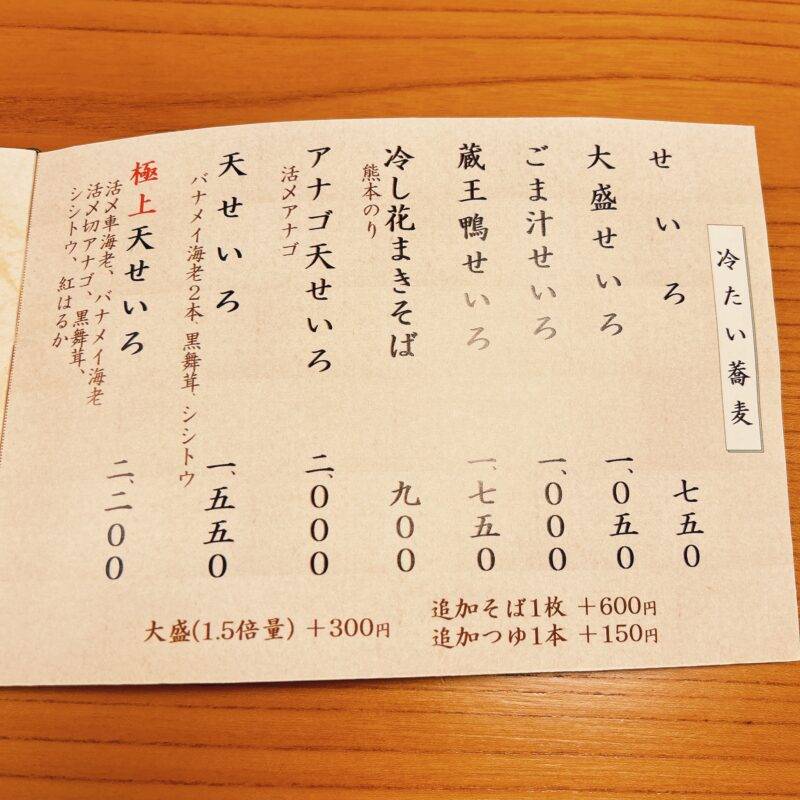 冷たい蕎麦
せいろ
七五0
大盛せいろ
一、0五0
ごま汁せいろ
一、000
蔵王鴨せいろ
一、七五0
冷し花まきそば
熊本のり
九00
アナゴ天せいろ
活〆アナゴ
二、000
天せいろ
バナメイ海老2本、黒舞茸、シシトウ
一、五五0
極上天せいろ
活〆車海老、バナメイ海老
活〆切アナゴ、黒舞茸、
シシトウ、紅はるか
二、二00
追加そば1枚 +600円
追加つゆ1本 +150円
大盛(1.5倍量) +300円